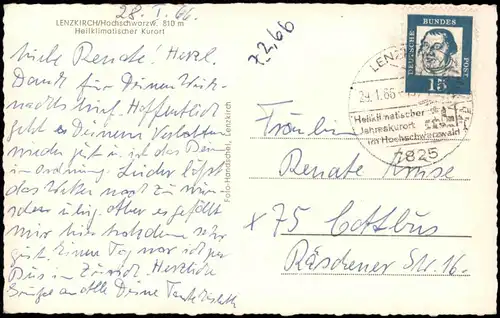 LENZKIRCH/Hochschwarzw. 810 m
Heilklimatischer Kurort
28. I. 66.
Liebe Renate! Herzl.
Dank für Deinen Weih-
nachtsbrief. Hoffentlich
geht es Deinem Verlobten
wieder gut u. ist das Bein
in Ordnung. Leider läßt
das Wetter noch zu wün-
schen übrig, aber es gefällt
mir hier trotzdem sehr
gut. Einen Tag war ich per
Bus in Zürich. Herzliche
Grüße an alle Deine Tante
Foto-Handschel, Lenzkirch
x 2,66
DEUTSCHE BUNDESPOST
15
LENZ
29.1.66
Heilklimatischer
Jahreskurort
im Hochschwarzwald
7825
Fräulein
Renate Kruse
x 75 Cottbus
Räschener Str. 16.